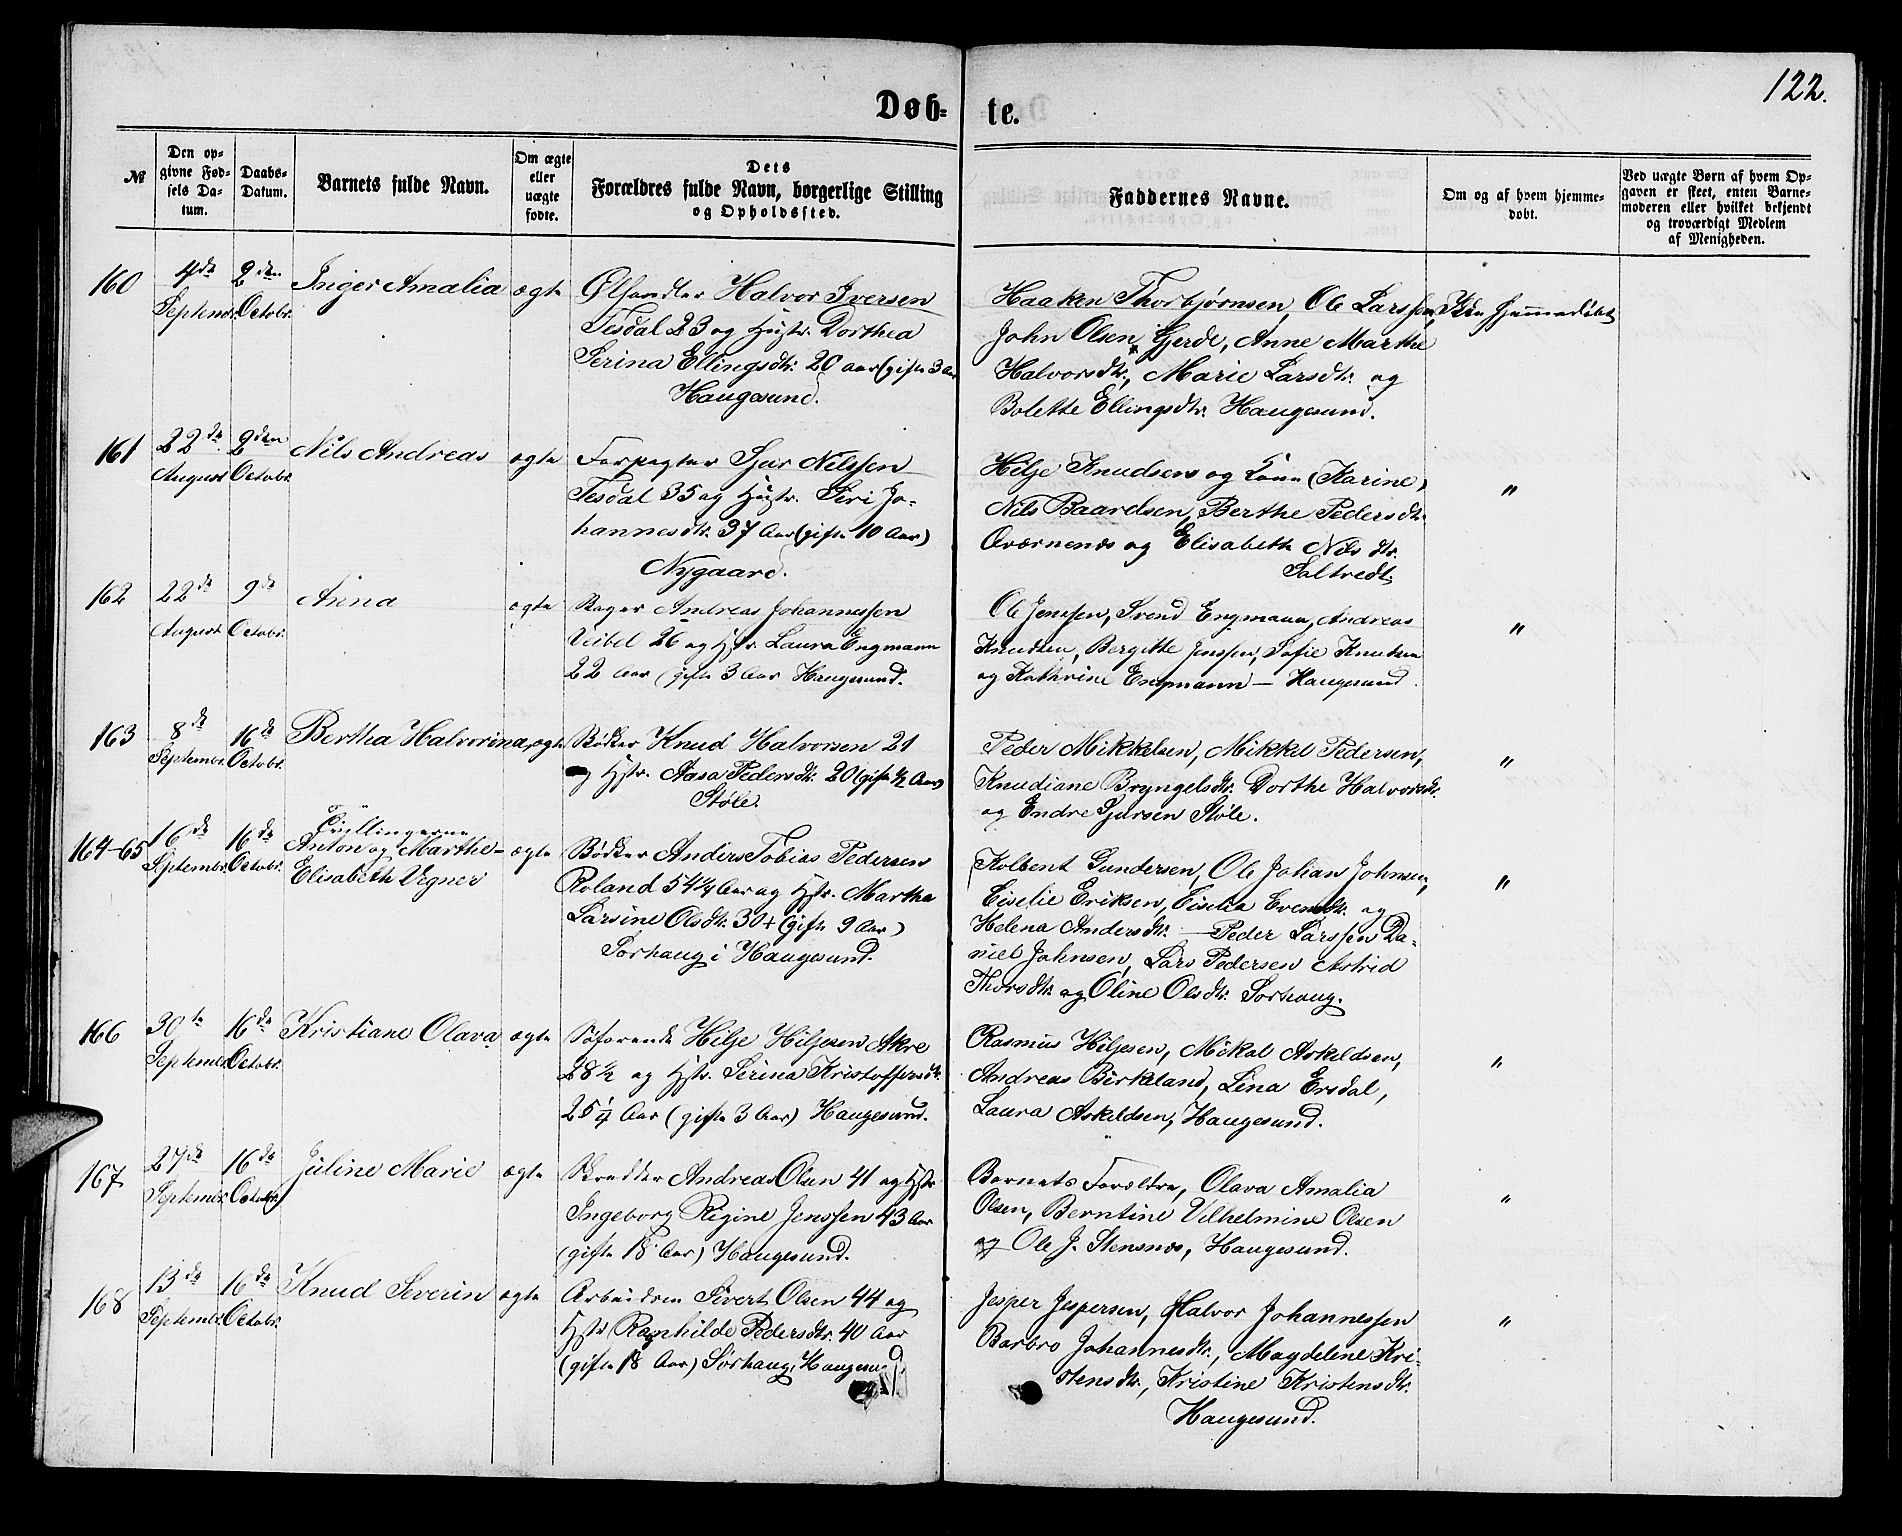 122.
Døb-te.
№
Den op-
givne Fød-
sels Da-
tum.
Daabs-
Datum.
Barnets fulde Navn.
Om ægte
eller
uægte
fødte.
Dets
Forældres fulde Navn, borgerlige Stilling
og Opholdssted.
Faddernes Navne.
Om og af hvem hjemme-
døbt.
Ved uægte Børn af hvem Op-
gaven er skeet, enten Barne-
moderen eller hvilket bekjendt
og troværdigt Medlem
af Menigheden.
160
4de
Septembr.
2den
Octobr.
Inger Amalia
ægte
Ølhandler Halvor Iversen
Tesdal 23 og Hustr. Dorthea
Serina Ellingsdtr. 20 aar (gifte 3 Aar
Haugesund.
Haaken Thorbjørnsen, Ole Larssen,
John Olsen Gjerde, Anne Marthe
Halvorsdtr., Marie Larsdtr. og
Bolette Ellingsdtr. Haugesund.
Ikke hjemmedøbt
161
22de
August
2den
Octobr.
Nils Andreas
ægte
Forpagter Sjur Nilssen
Tesdal 35 og Hustr. Siri Jo-
hannesdtr. 37 Aar (gifte 10 Aar)
Nygaard.
Hilje Knudsen og Kone (Karine)
Nils Baardsen, Berthe Pedersdtr.
Qværnenæs og Elisabeth Nilsdtr.
Saltvedt.
"
162
22de
August
9de
Octobr.
Anna
ægte
Bager Andreas Johannessen
Veibel 26 og Hstr. Laura Engmann
22 Aar (gifte 3 Aar Haugesund.
Ole Jenssen, Svend Engmann, Andreas
Knudsen, Bergitte Jenssen, Sofie Knutsen
og Kathrine Engmann — Haugesund.
"
163
8de
Septembr.
16de
Octobr.
Bertha Halvorina,
ægte
Bødker Knud Halvorsen 21
og Hstr. Aasa Pedersdtr. 20 (gifte ½ Aar)
Støle.
Peder Mikkelsen, Mikkel Pedersen,
Knudiane Bryngelsdtr. Dorthe Halvorsdtr.
og Endre Sjursen Støle.
"
164-65
16de
Septembr.
16de
Octobr.
Tvillingerne
Anton og Marthe-
Elisabeth Vegner
ægte
Bødker Anders Tobias Pedersen
Roland 54¼ Aar og Hstr. Martha
Larsine Olsdtr. 30+ (gifte 9 Aar)
Sørhaug i Haugesund.
Kolbent Gundersen, Ole Johan Johnsen,
Giselie Eriksen, Giselia Evensdtr. og
Helena Andersdtr. — Peder Larssen Da-
niel Johnsen, Lars Pedersen Astrid
Thorsdtr. og Oline Olsdtr. Sørhaug.
"
166
30te
Septembr.
16de
Octobr.
Kristiane Olava
ægte
Søfarende Hilje Hiljesen Akre
28½ og Hstr. Serina Kristoffersdtr.
25¼ Aar (gifte 3 Aar) Haugesund.
Rasmus Hiljesen, Mikal Askildsen,
Andreas Birkeland, Lina Ersdal,
Laura Askildsen, Haugesund.
"
167
27de
Septembr.
16de
Octobr.
Juline Marie
ægte
Skredder Andreas Olsen 41 og Hstr.
Ingeborg Regine Jenssen 43 Aar
(gifte 18 Aar) Haugesund.
Barnets Forældre, Olava Amalia
Olsen, Berntine Vilhelmine Olsen
og Ole J. Stensnæs, Haugesund.
"
168
13de
Septembr.
16de
Octobr.
Knud Severin
ægte
Arbeidsm Sivert Olsen 44 og
Hstr Ragnhilde Pedersdtr. 40 Aar
(gifte 18 Aar) Sørhaug, Haugesund.
Jesper Jespersen, Halvor Johannessen
Barbro Johannesdtr., Magdelene Kri-
stensdtr., Kristine Kristensdtr.
Haugesund.
"